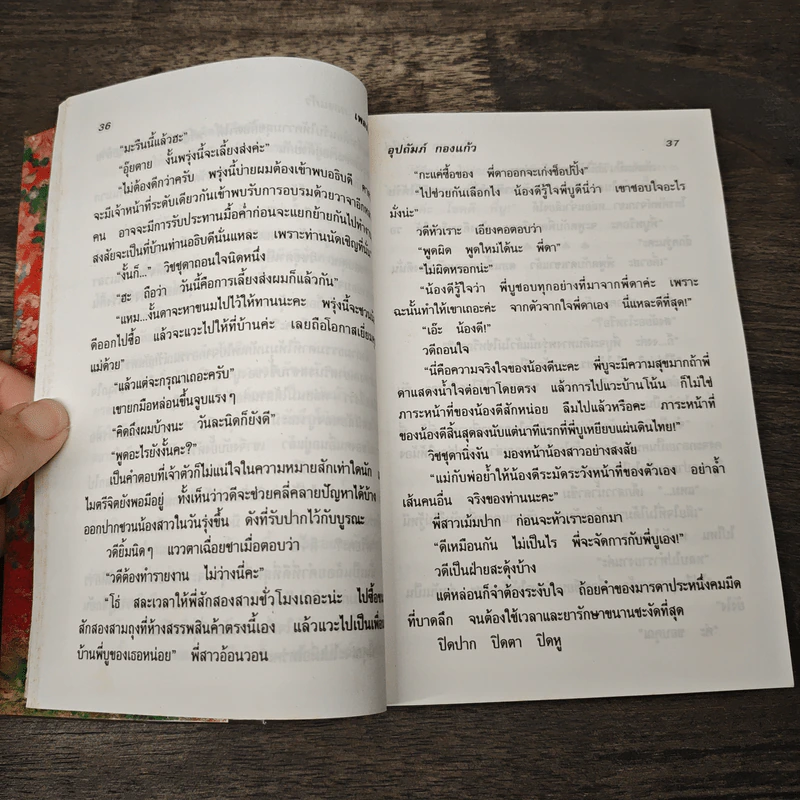 36
"มะรืนนี้แล้วฮะ"
"อุ๊ยตาย งั้นพรุ่งนี้จะเลี้ยงส่งค่ะ"
"ไม่ต้องดีกว่าครับ พรุ่งนี้บ่ายผมต้องเข้าพบอธิบดี
จะมีเจ้าหน้าที่ระดับเดียวกันเข้าพบรับการอบรมด้วยวาจาอีก
คน อาจจะมีการรับประทานมื้อค่ำก่อนจะแยกย้ายกันไป
สงสัยจะเป็นที่บ้านท่านอธิบดีนั่นแหละ เพราะท่านนัดเชิญที่
"งั้นก็..." วิชชุดาถอนใจนิดหนึ่ง
"ฮะ ถือว่า วันนี้คือการเลี้ยงส่งผมก็แล้วกัน"
"แหม...งั้นดาจะหาขนมไปไว้ให้ทานนะคะ พรุ่งนี้จะชวน
ดีออกไปซื้อ แล้วจะแวะไปให้ที่บ้านค่ะ เลยถือโอกาสเยี่ยม
แม่ด้วย"
"แล้วแต่จะกรุณาเถอะครับ"
เขายกมือหล่อนขึ้นจูบแรงๆ
"คิดถึงผมบ้างนะ วันละนิดก็ยังดี"
"พูดอะไรยังงั้นคะ?"
เป็นคำตอบที่เจ้าตัวก็ไม่แน่ใจในความหมายสักเท่าใดนัก
ไมตรีจิตยังพอมีอยู่ ทั้งเห็นว่าวดีจะช่วยคลี่คลายปัญหาได้บ้าง
ออกปากชวนน้องสาวในวันรุ่งขึ้น ดังที่รับปากไว้กับบูรณะ
วดียิ้มนิดๆ แววตาเฉื่อยชาเมื่อตอบว่า
"วดีต้องทำรายงาน ไม่ว่างนี่คะ"
"โธ่ สละเวลาให้พี่สักสองสามชั่วโมงเถอะน่ะ ไปซื้อ
สักสองสามถุงที่ห้างสรรพสินค้าตรงนี้เอง แล้วแวะไปเป็นเพื่อน
บ้านพี่บูของเธอหน่อย" พี่สาวอ้อนวอน
อุปถัมภ์ กองแก้ว
37
"กะแค่ซื้อของ พี่ดาออกจะเก่งช็อปปิ้ง"
"ไปช่วยกันเลือกไง น้องดีรู้ใจพี่บูดีนี่ว่า เขาชอบใจอะไร
มั่งน่ะ"
วดีหัวเราะ เอียงคอตอบว่า
"พูดผิด พูดใหม่ได้นะ พี่ดา"
"ไม่ผิดหรอกน่ะ"
"น้องดีรู้ใจว่า พี่บูชอบทุกอย่างที่มาจากพี่ดาค่ะ เพราะ
ฉะนั้นทำให้เขาเถอะค่ะ จากตัวจากใจพี่ดาเอง นี่แหละดีที่สุด!"
"เอ๊ะ น้องดี!"
วดีถอนใจ
"นี่คือความจริงใจของน้องดีนะคะ พี่บูจะมีความสุขมากถ้าพี่
ดาแสดงน้ำใจต่อเขาโดยตรง แล้วการไปแวะบ้านโน้น ก็ไม่ใช่
ภาระหน้าที่ของน้องดีสักหน่อย ลืมไปแล้วหรือคะ ภาระหน้าที่
ของน้องดีสิ้นสุดลงนับแต่นาทีแรกที่พี่บูเหยียบแผ่นดินไทย!"
วิชชุดานิ่งงัน มองหน้าน้องสาวอย่างสงสัย
"แม่กับพ่อย้ำให้น้องดีระมัดระวังหน้าที่ของตัวเอง อย่าล้ำ
เส้นคนอื่น จริงของท่านนะคะ"
พี่สาวเม้มปาก ก่อนจะหัวเราะออกมา
"ดีเหมือนกัน ไม่เป็นไร พี่จะจัดการกับพี่บูเอง!"
วดีเป็นฝ่ายสะดุ้งบ้าง
แต่หล่อนก็จำต้องระงับใจ ถ้อยคำของมารดาประหนึ่งคมมีด
ที่บาดลึก จนต้องใช้เวลาและยารักษาขนานชะงัดที่สุด
ปิดปาก ปิดตา ปิดหู